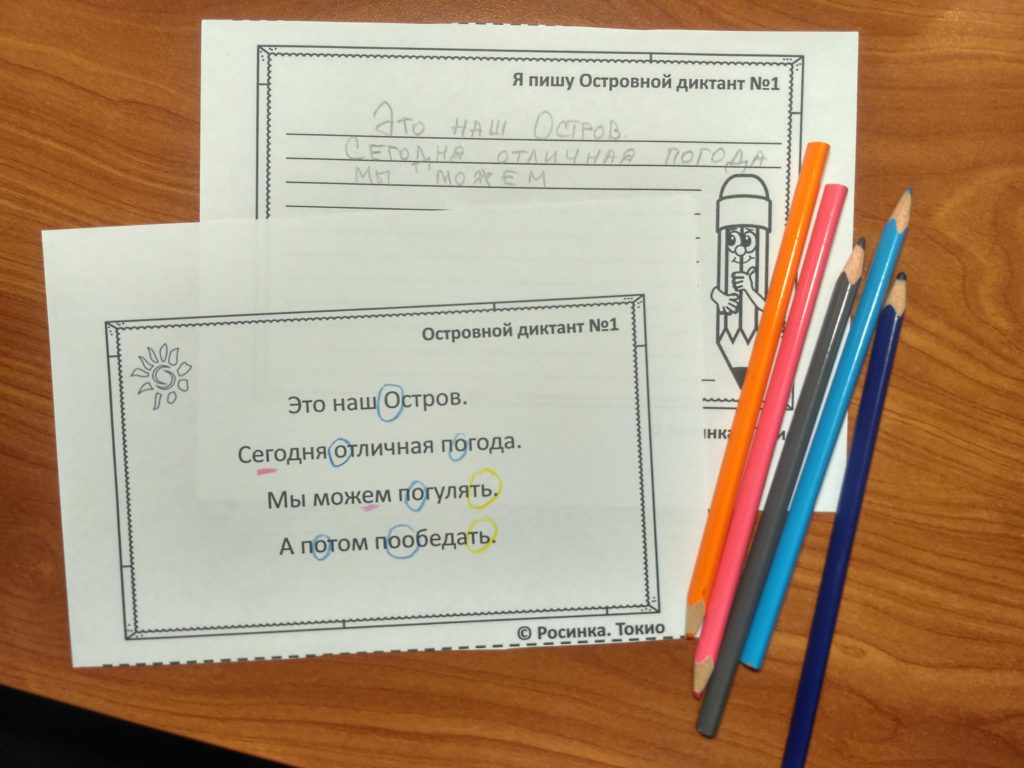 Я пишу Островной диктант №1
Это наш Остров.
Сегодня отличная погода
мы можем
Островной диктант №1
Это наш Остров.
Сегодня отличная погода.
Мы можем погулять.
А потом пообедать.
© Росинка. Токио